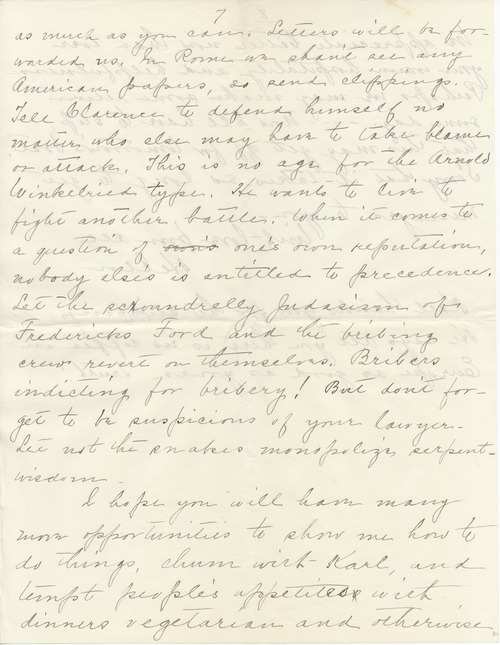 7
as much as you can. Letters will be for-
warded us. In Rome we shan't see any
American papers, so send clippings.
Tell Clarence to defend himself no
matter who else may have to take blame
or attack. This is no age for the Arnold
Winkelried type. He wants to live to
fight another battle. When it comes to
a question of one's own reputation,
nobody else's is entitled to precedence.
Let the scoundrelly Judasism of
Fredericks Ford and the bribing
crew revert on themselves. Bribers
indicting for bribery! But don't for-
get to be suspicious of your lawyer.
Let not the snakes monopolize serpent-
wisdom.
I hope you will have many
more opportunities to show me how to
do things, chum with Karl, and
tempt people's appetites with
dinners vegetarian and otherwise.